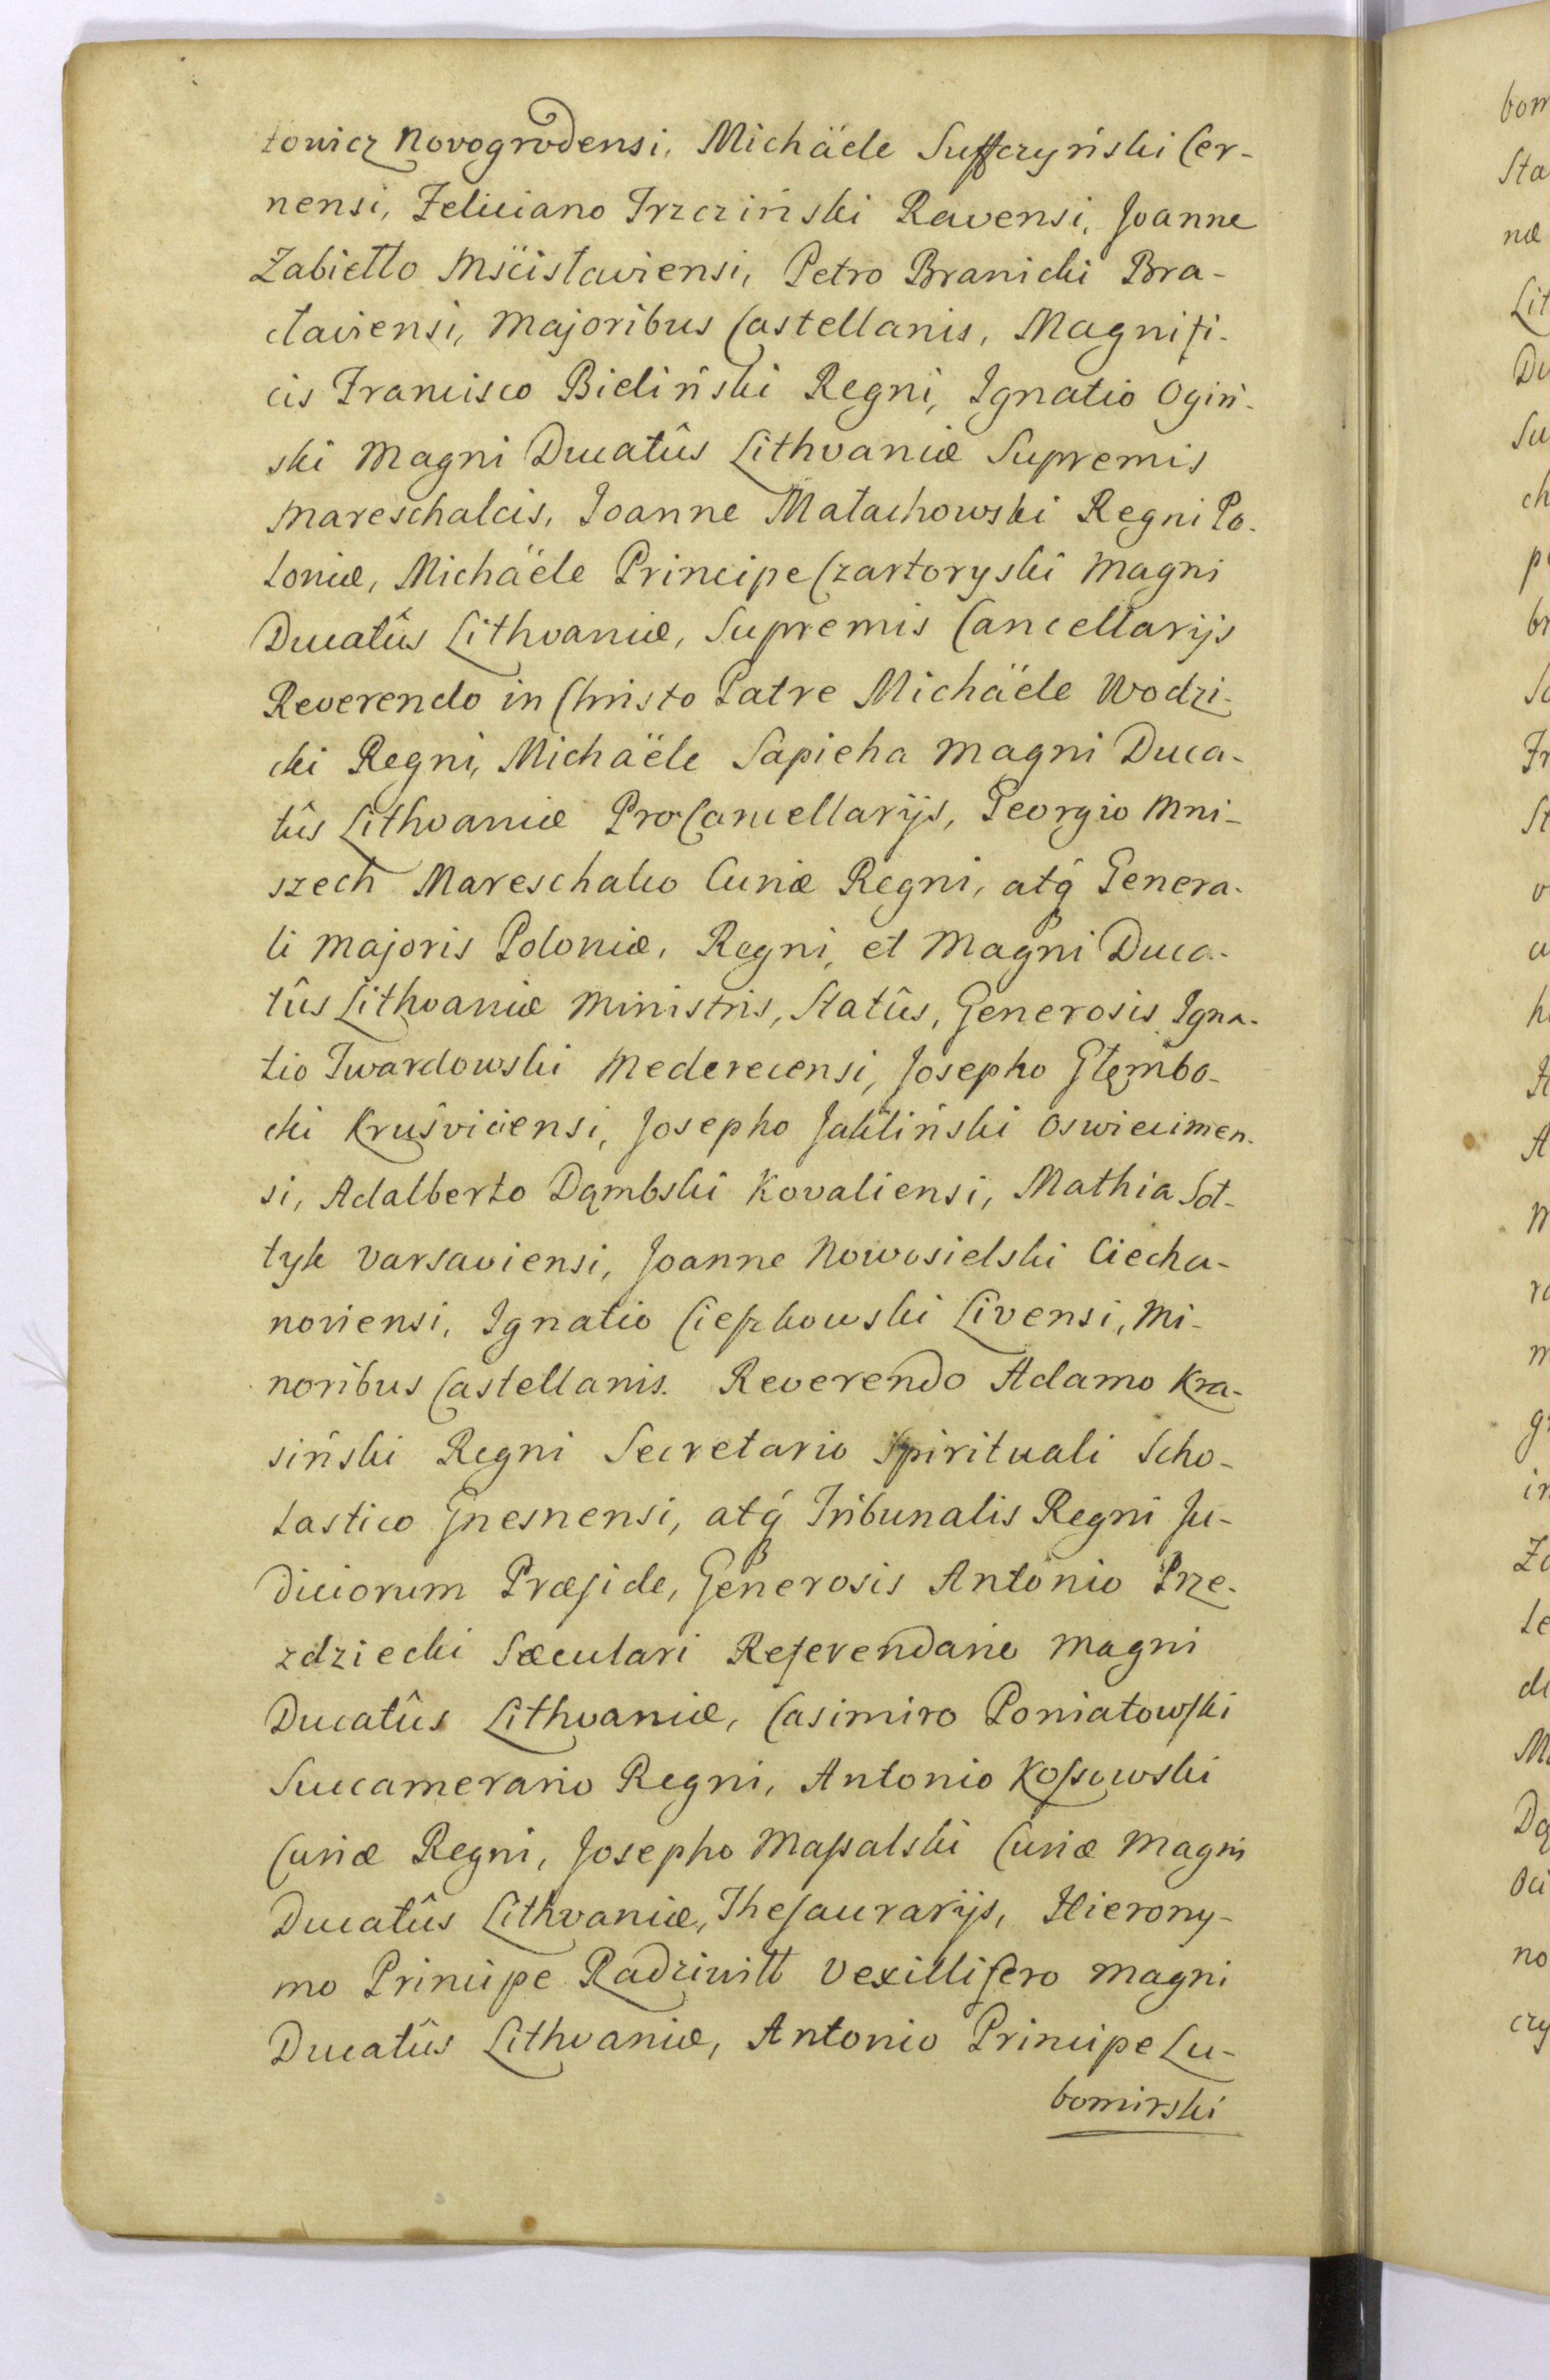 łowicz Novogrodensi, Michäele Suffczyński Cer-
nensi, Feliciano Trzciński Ravensi, Joanne
Zabiełło Mścisłaviensi, Petro Branicki Bra-
claviensi, Majoribus Castellanis, Magnifi-
cis Francisco Bieliński Regni, Ignatio Ogiń-
ski Magni Ducatûs Lithvaniæ Supremis
Mareschalcis, Joanne Małachowski Regni Po-
loniæ, Michäele Principe Czartoryski Magni
Ducatûs Lithvaniæ, Supremis Cancellarijs
Reverendo in Christo Patre Michäele Wodzi-
cki Regni, Michaële Sapieha Magni Duca-
tûs Lithvaniæ ProCancellarijs, Georgio Mni-
szech Mareschalco Curiæ Regni, atq́ Genera-
li Majoris Poloniæ, Regni, et Magni Duca-
tûs Lithvaniæ Ministris, Statûs, Generosis Igna-
tio Twardowski Mederecensi, Josepho Głęmbo-
cki Kruśviciensi, Josepho Jakliński Oswiecimen-
si, Adalberto Dąmbski Kovaliensi, Mathia Soł-
tyk Varsaviensi, Joanne Nowosielski Ciecha-
noviensi, Ignatio Cieſzkowski Livensi, Mi-
noribus Castellanis. Reverendo Adamo Kra-
siński Regni Secretario Spirituali Scho-
lastico Gnesnensi, atq́ Tribunalis Regni Ju-
diciorum Præſide, Generosis Antonio Prze-
zdziecki Sæculari Referendario Magni
Ducatûs Lithvaniæ, Casimiro Poniatowſki
Succamerario Regni, Antonio Koſsowski
Curiæ Regni, Josepho Maſsalski Curiæ Magni
Ducatûs Lithvaniæ, Theſaurarijs, Hierony-
mo Principe Radziwiłł Vexillifero Magni
Ducatûs Lithvaniæ, Antonio Principe Lu-
bomirski